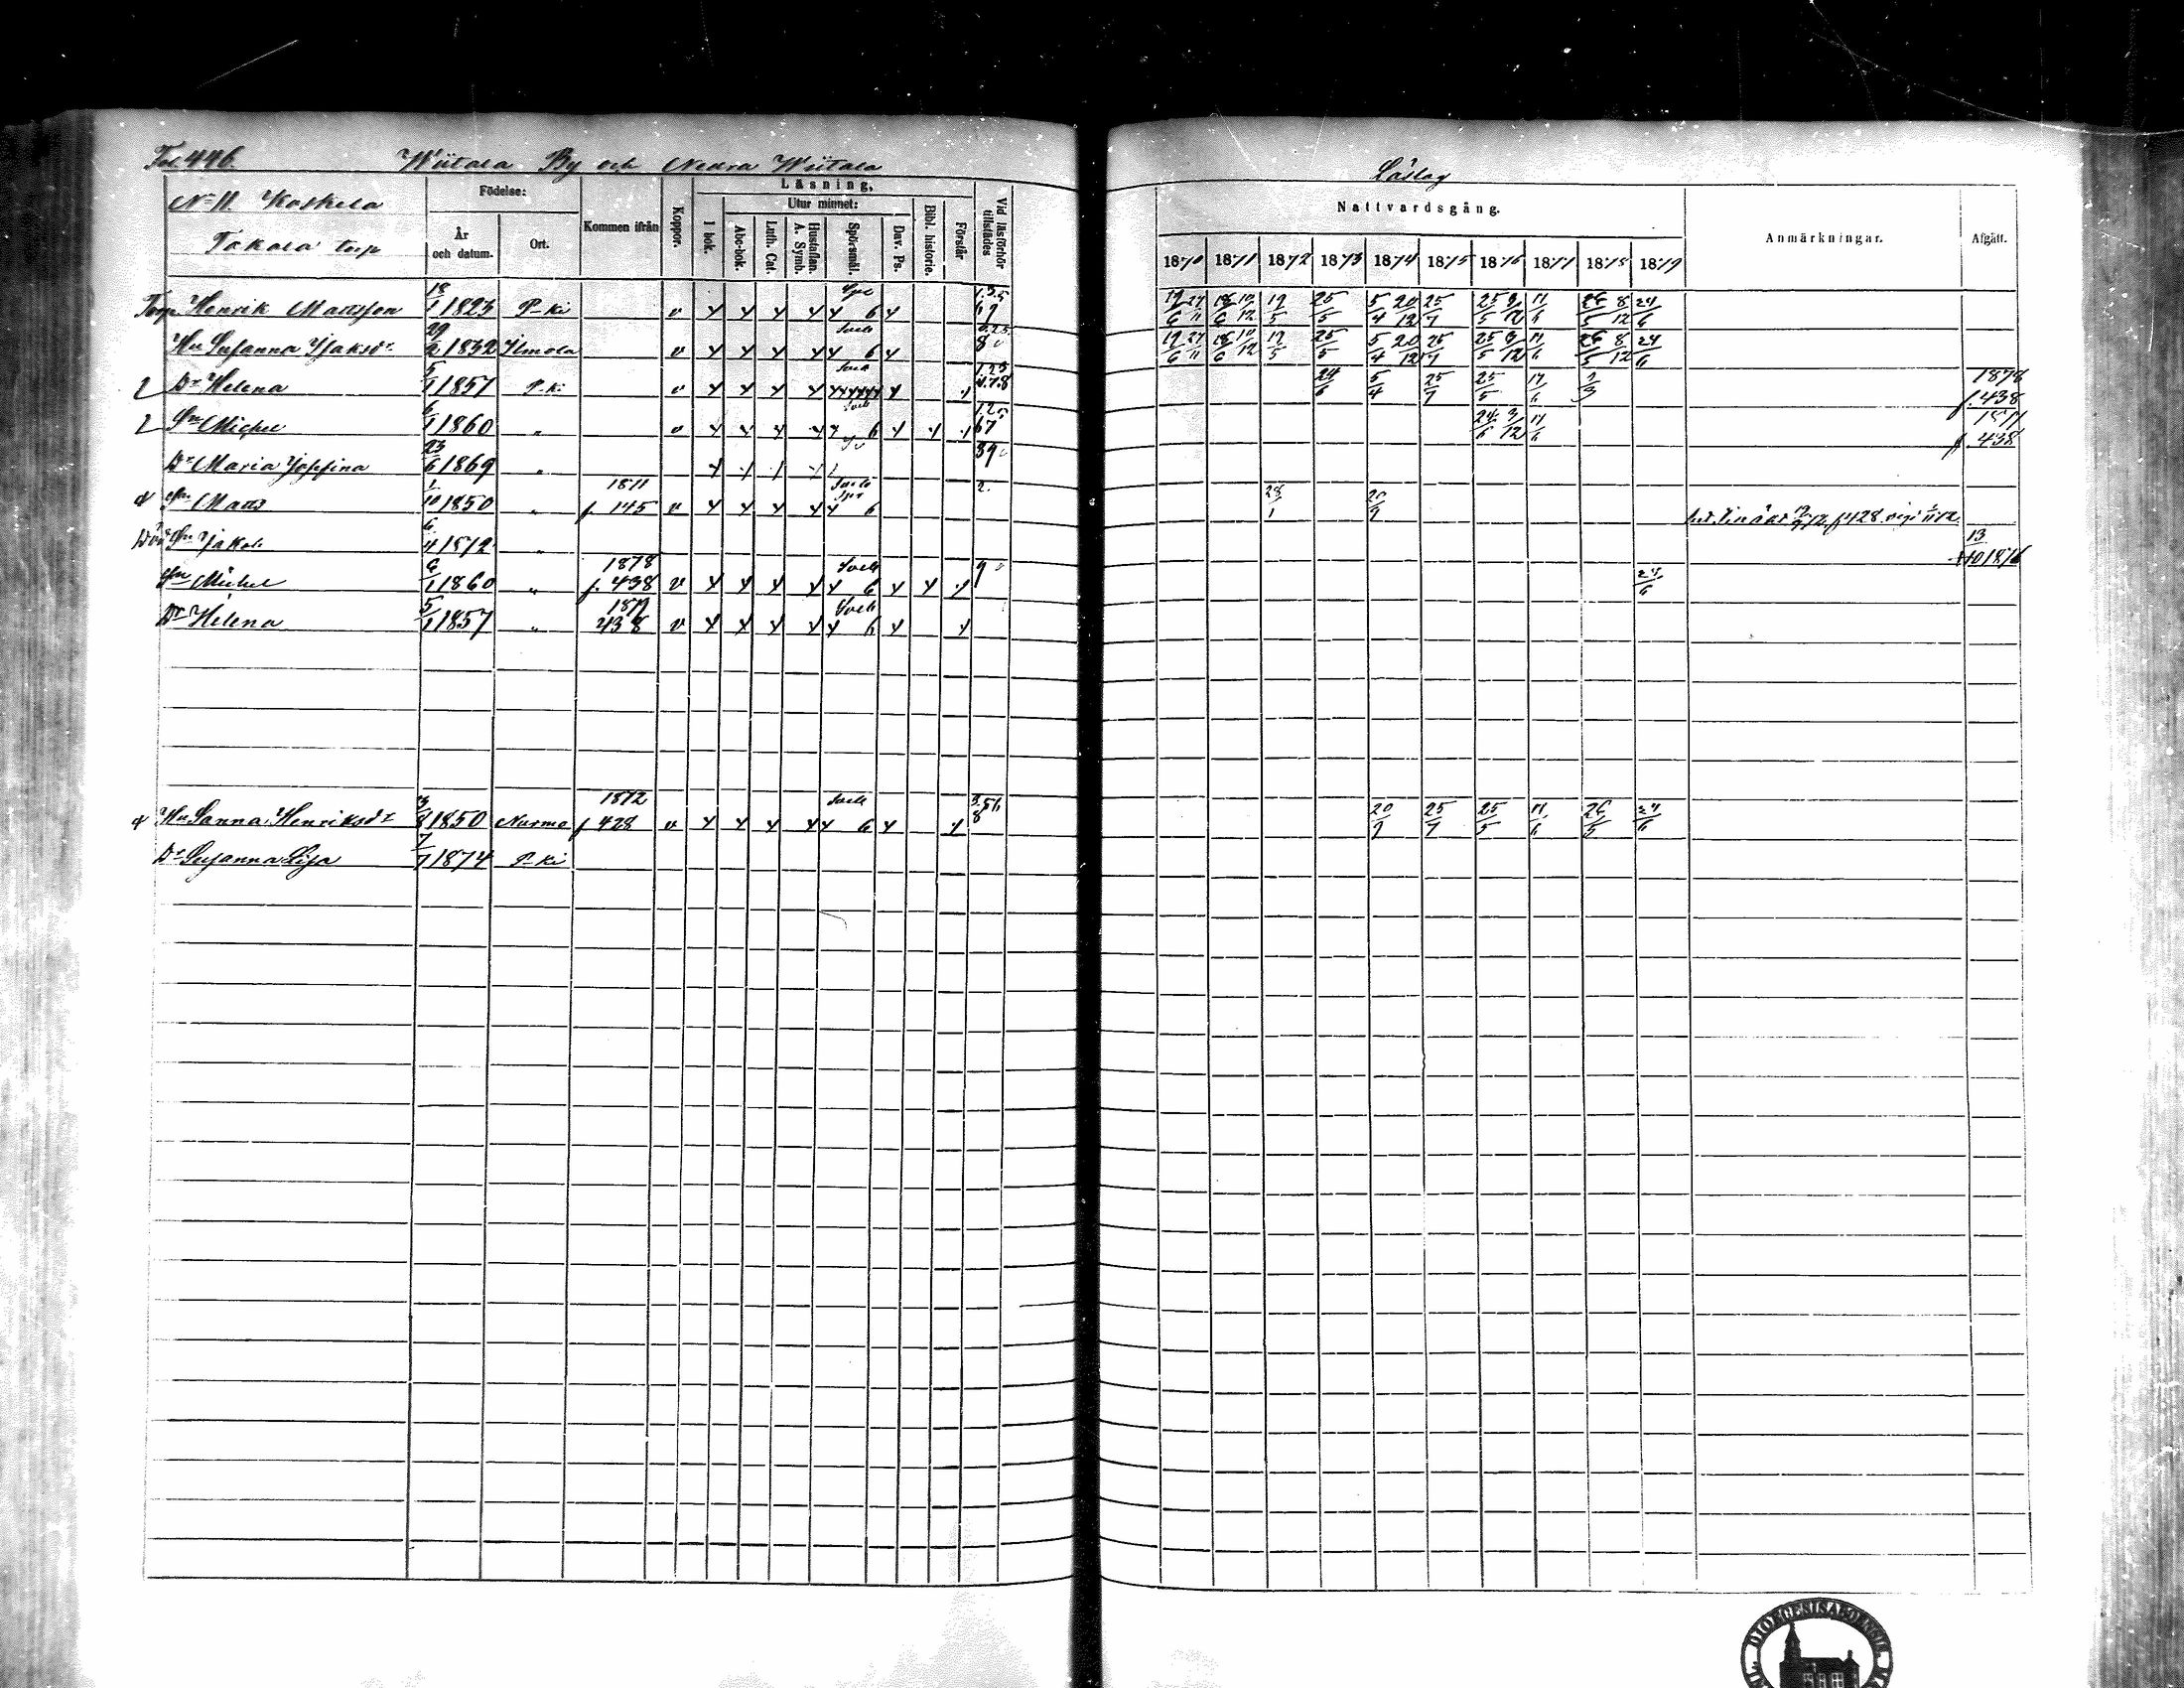 Fol 446. Wiitala By och Nedra Wiitala Läslag
No 11. Koskela
Takala torp
Födelse:
År och datum.
Ort.
Kommen ifrån
Koppor.
Läsning,
I bok.
Utur minnet:
Abc-bok.
Luth. Cat.
Hustaflan. A. Symb.
Spörsmål.
Dav. Ps.
Bibl. historie.
Förstår
Vid läsförhör tillstädes
Nattvardsgång.
1870 1871 1872 1873 1874 1875 1876 1877 1878 1879
Anmärkningar.
Afgått.
Torp Henrik Mattsson 18/1 1823 P-ki v 6
19/6 27/11 18/6 10/12 19/5 25/5 5/4 20/12 25/7 25/5 3/12 11/6 26/5 8/12 24/6
Hu Susanna Isaksdr 29/2 1832 Ilmola v 6
19/6 27/11 18/6 10/12 19/5 25/5 5/4 20/12 25/7 25/5 3/12 11/6 26/5 8/12 24/6
Dr Helena 5/1 1857 P-ki v
24/6 5/4 25/7 25/5 17/6
1878 f. 438
Sn Michel 6/1 1860 " v 6
24/6 3/12 17/6
1877 f 438
Dr Maria Josefina 23/6 1869 "
Sn Matts 1/10 1850 " 1871 f. 145 v 6 2.
28/1 20/9
f 428
Sn Jakob 6/4 1872 "
13/10 1876
Sn Michel 6/1 1860 " 1878 f. 438 v 6 9
24/6
Dr Helena 5/1 1857 " 438 v 6
Hu Sanna Henriksdr 3/8 1850 Nurmo 1872 f 428 v 6
20/9 25/7 25/5 11/6 26/5 24/6
Dr Susanna Lisa 7/7 1874 P-ki